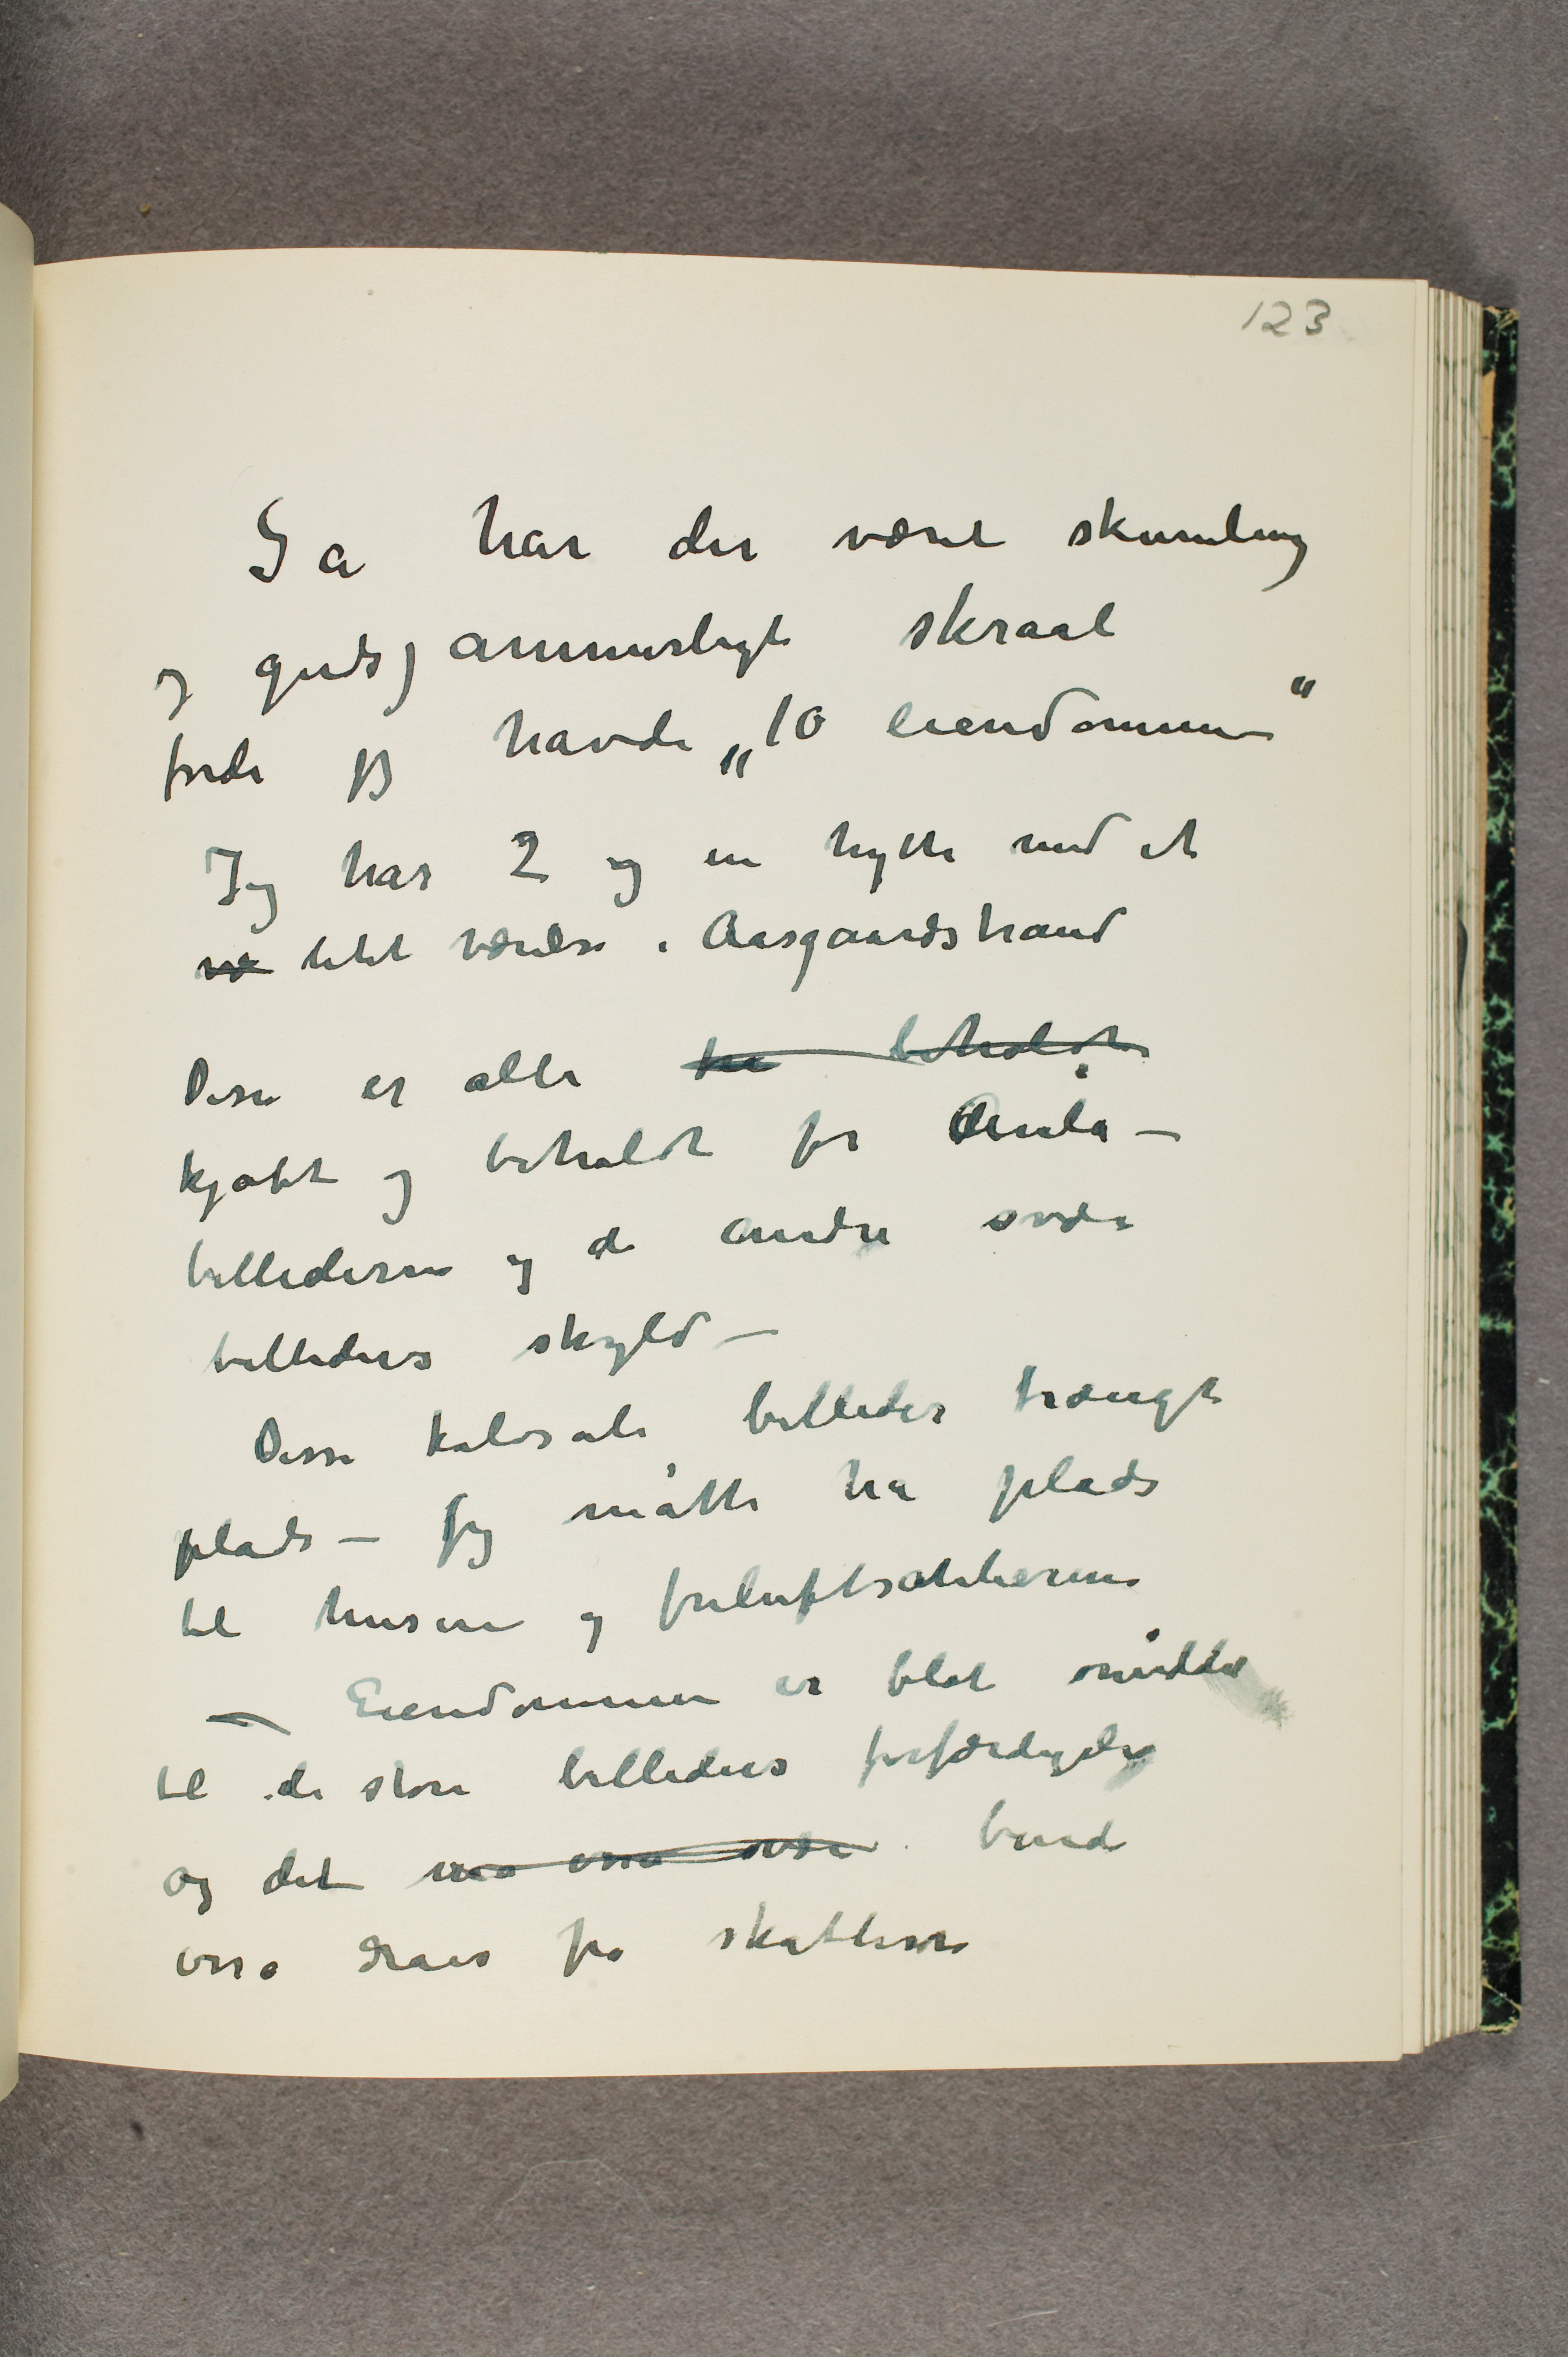 123
Så har der været skumling
og gudsjammerligt skraal
fordi jeg havde „10 eiendommer“
Jeg har 2 og en hytte med et
væ litet værelse i Aasgaardstrand
Disse er alle ha beholdt
kjøbt og beholdt for Aula–
billederne og de andre svære
billeders skyld –
Disse kolosale billeder trængte
plads – Jeg måtte ha plads
til husene og friluftsatelierene
– Eiendommene er blot midde
til de store billeders forfærdigelse
og det må osså være burde
osså draes fra skatterne